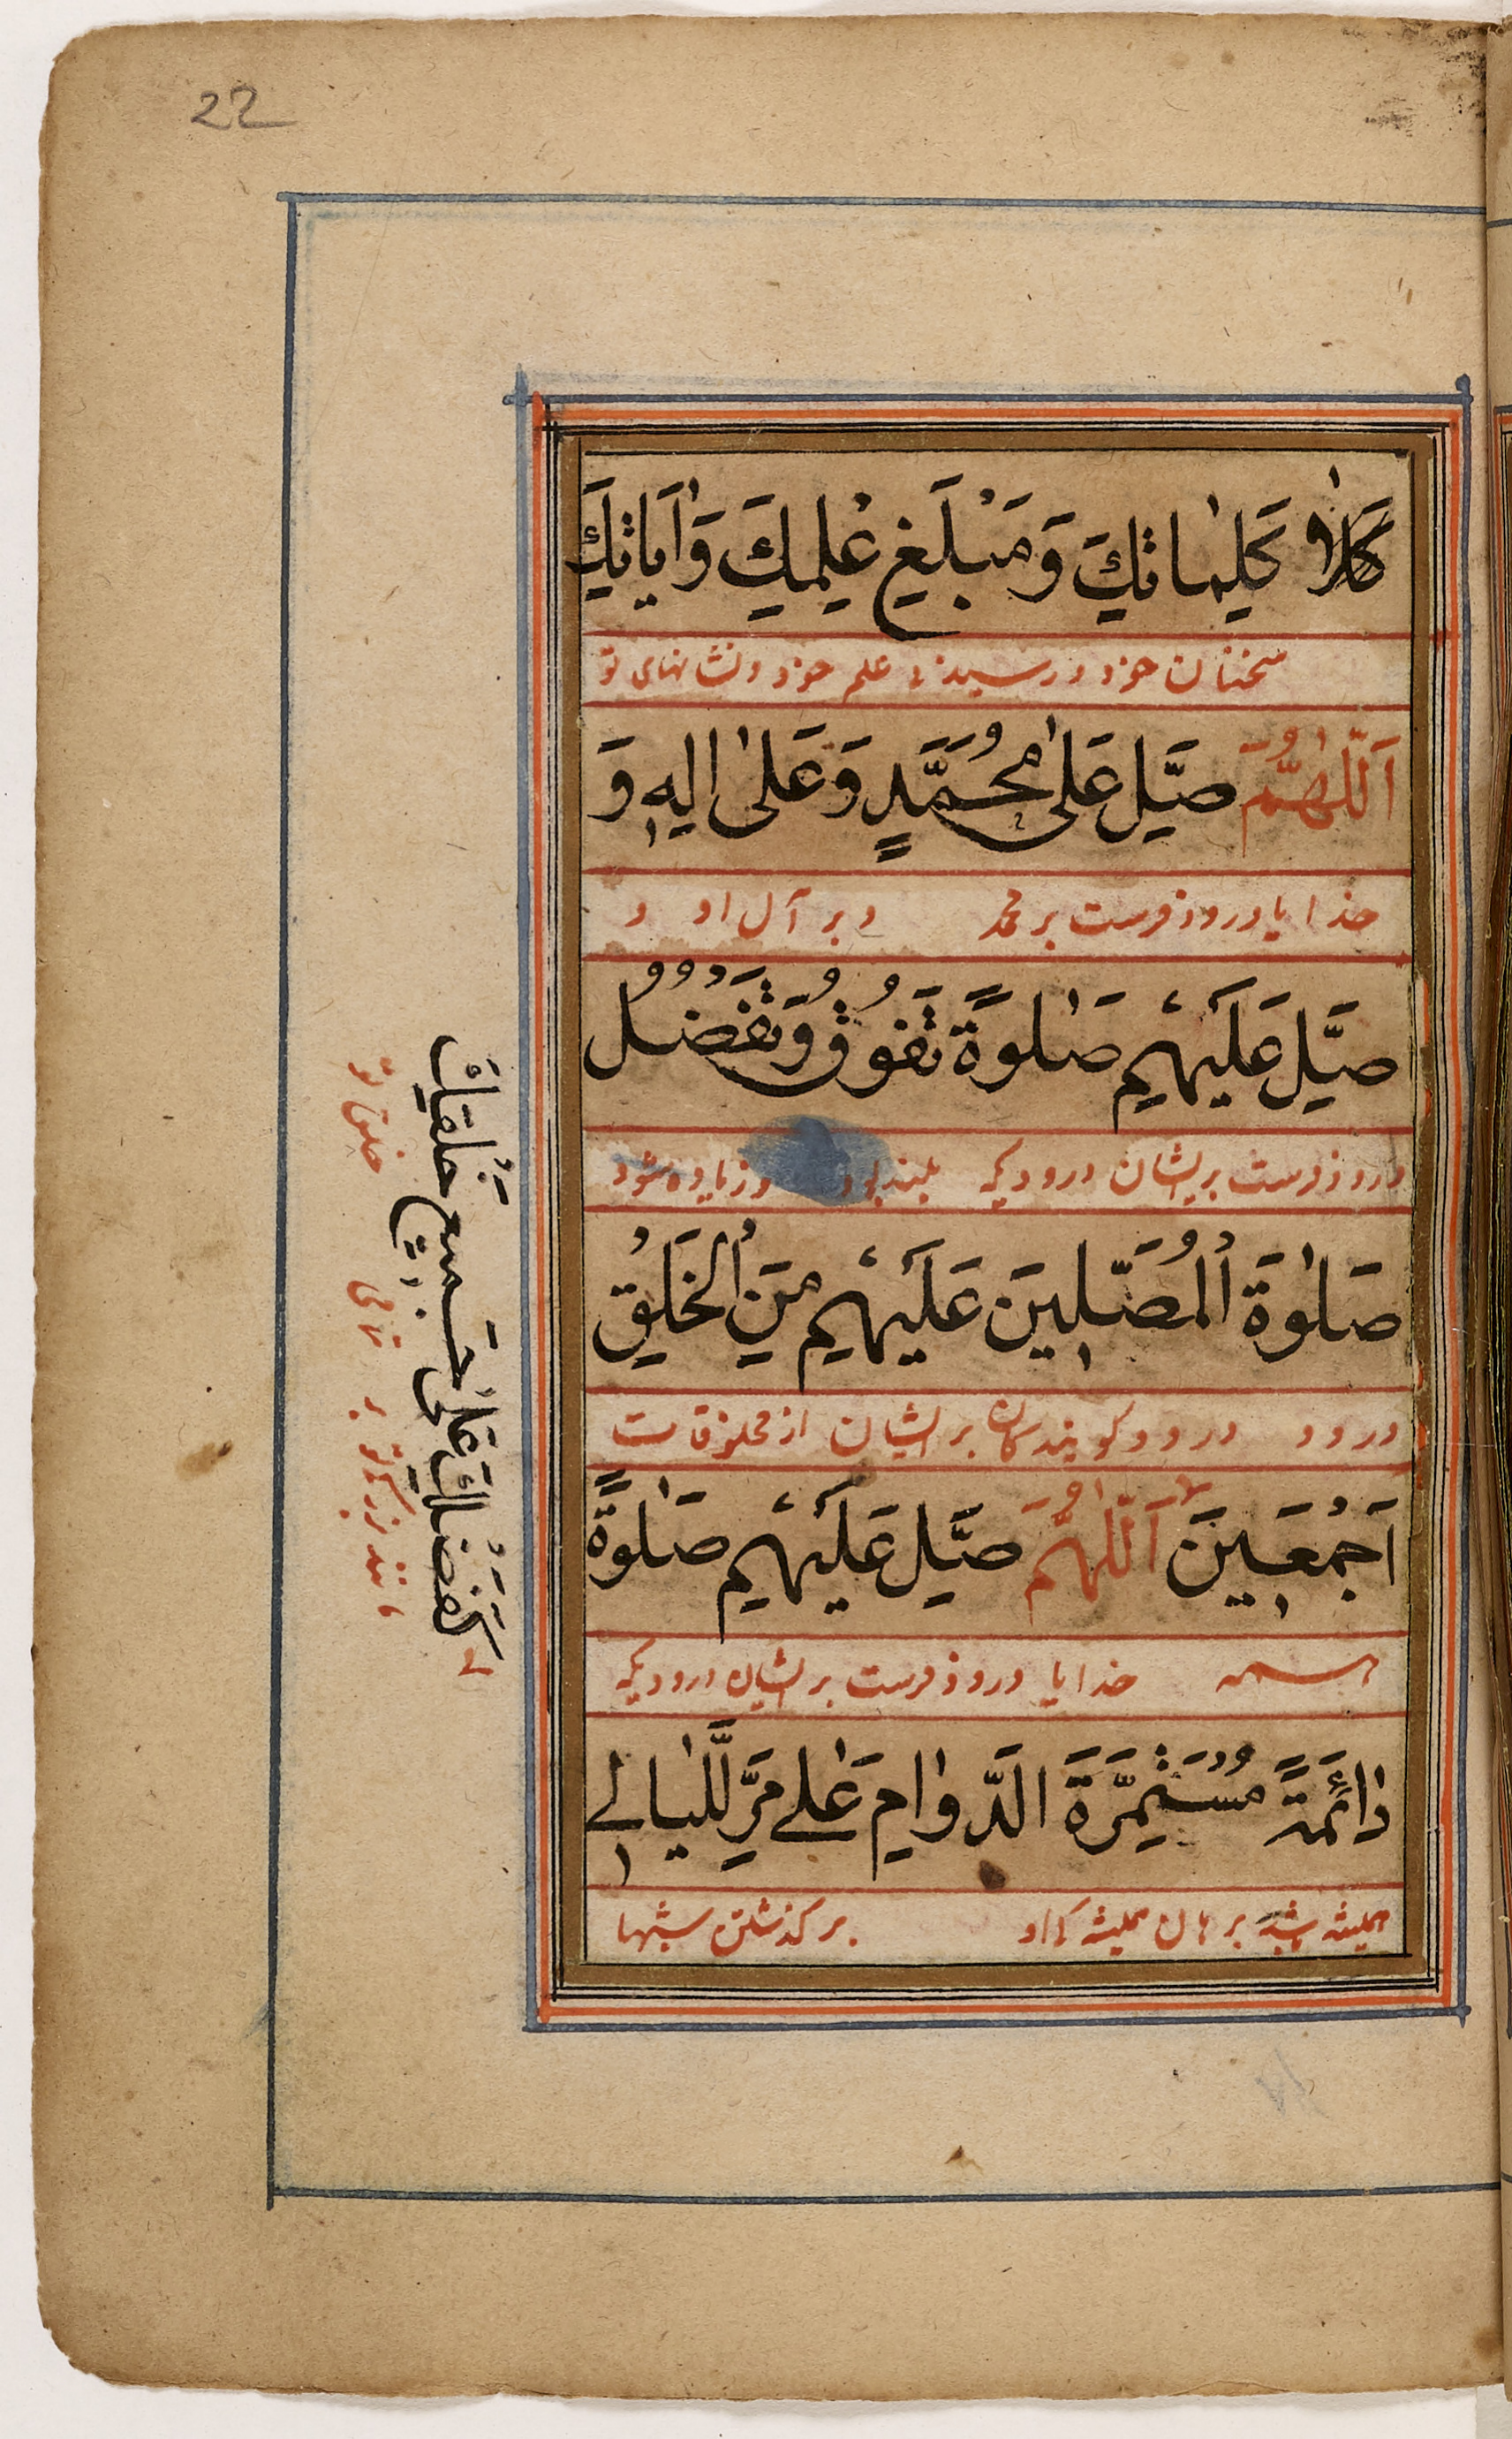 22
كلا كَلِمَاتِكَ وَمَبْلَغِ عِلْمِكَ وَاٰيَاتِكَ
سخنان خود و رسیدن علم خود و نشانهای تو
اَللّٰهُمَّ صَلِّ عَلٰى مُحَمَّدٍ وَعَلٰى اٰلِهٖ وَ
خدایا درود فرست بر محمد و بر آل او و
صَلِّ عَلَيْهِمْ صَلٰوةً تَفُوْقُ وَتَفْضُلُ
درود فرست بر ایشان درودیکه بلند بود و زیاده شود
صَلٰوةَ الْمُصَلِّيْنَ عَلَيْهِمْ مِنَ الْخَلْقِ
درود درود گویندگان بر ایشان از مخلوقات
اَجْمَعِيْنَ اَللّٰهُمَّ صَلِّ عَلَيْهِمْ صَلٰوةً
همه خدایا درود فرست بر ایشان درودیکه
دَائِمَةً مُسْتَمِرَّةَ الدَّوَامِ عَلٰى مَرِّ اللَّيَالِي
همیشه باشد بر گذشتن شبها
كَفَضْلِكَ عَلٰى جَمِيْعِ خَلْقِكَ
مانند بزرگی تو بر تمامی خلق تو